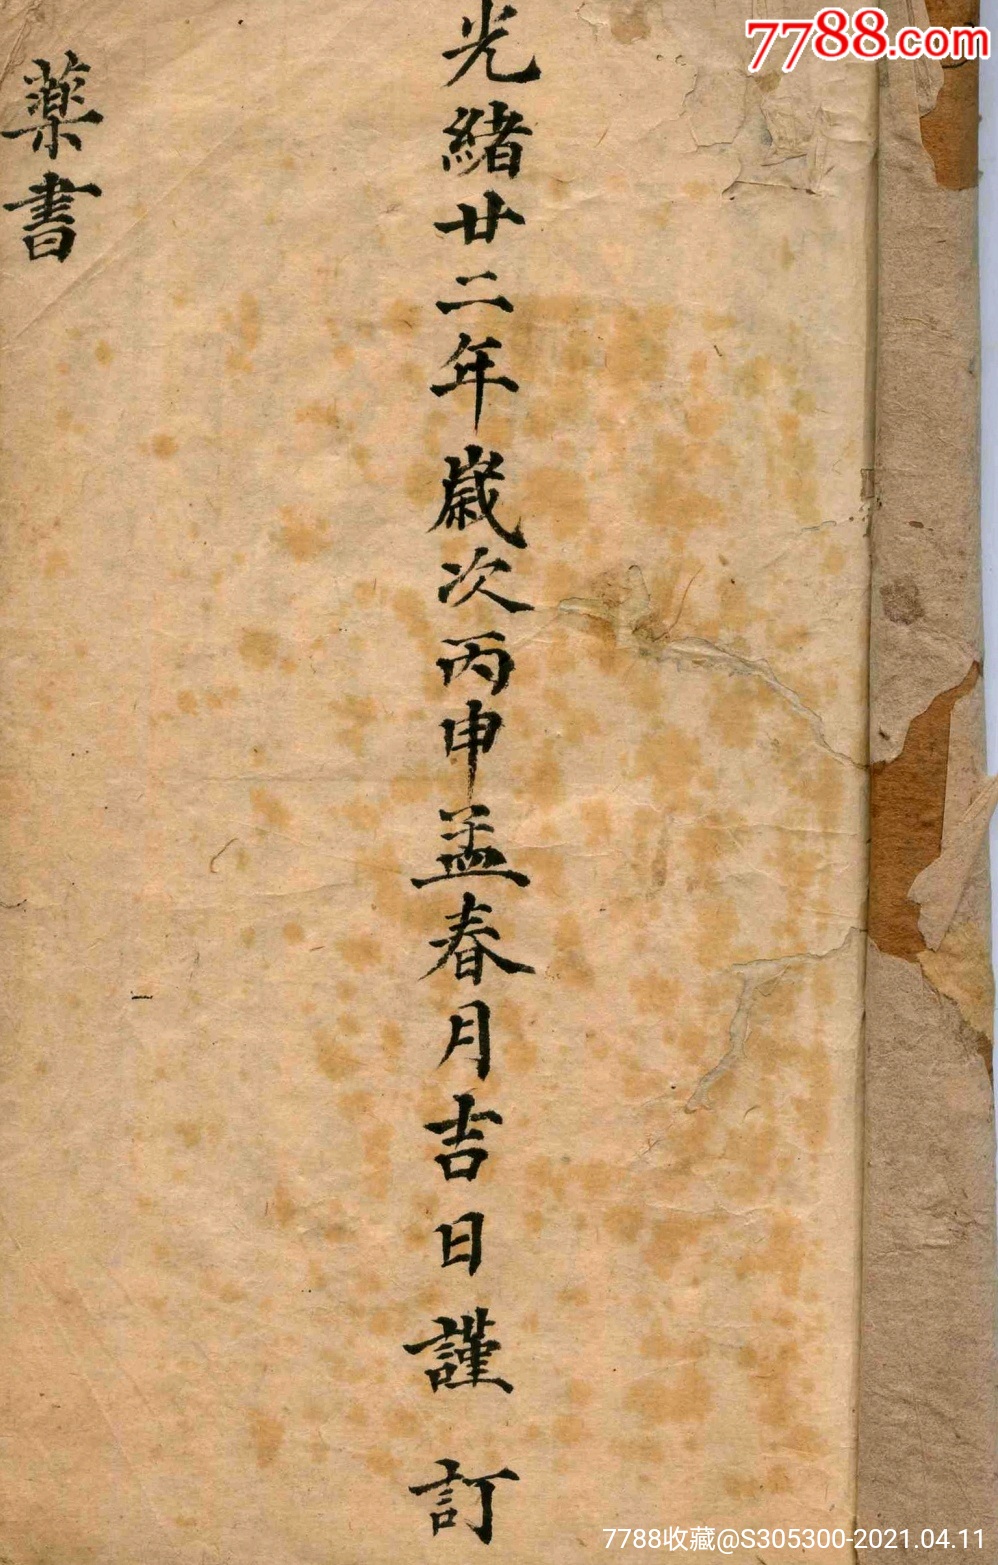 7788.com
光緒廿二年歲次丙申孟春月吉日謹訂
藥書
7788收藏@S305300-2021.04.11